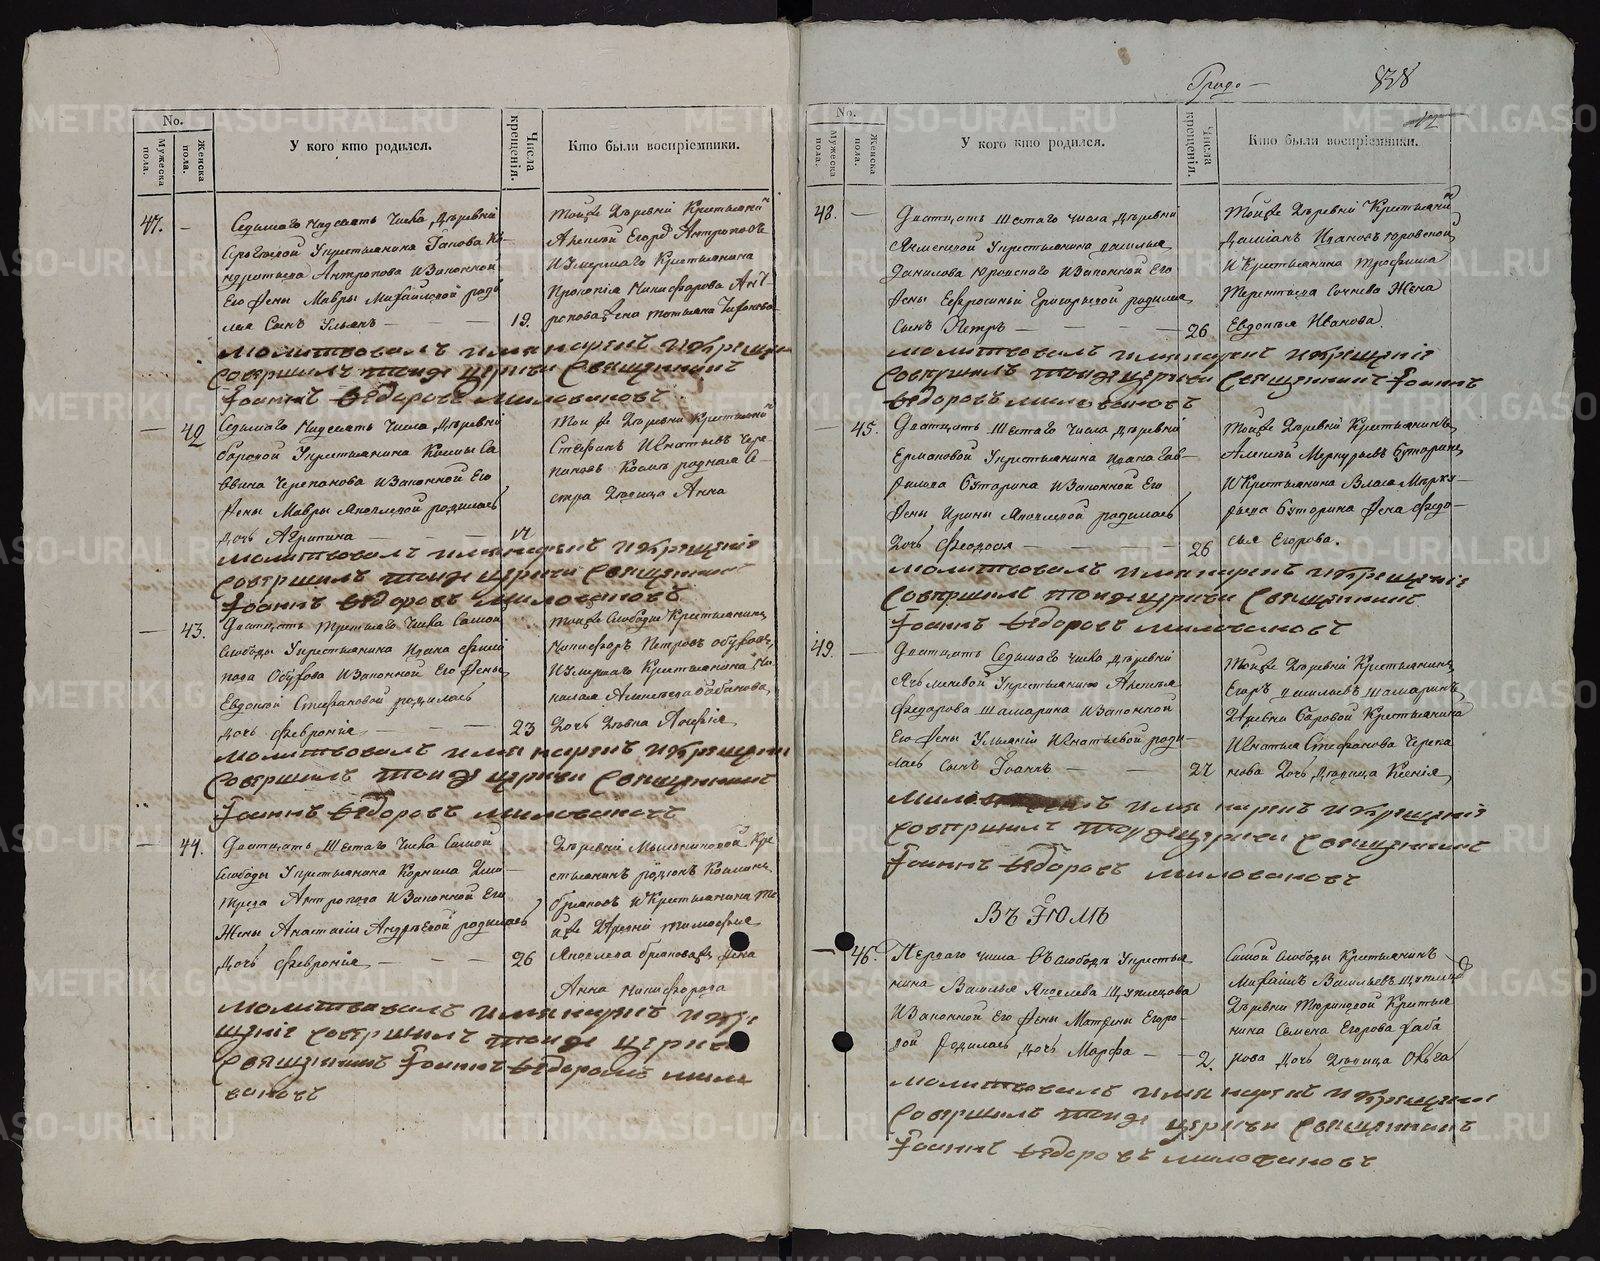 No.
Мужеска пола.
Женска пола.
У кого кто родился.
Числа крещенія.
Кто были воспріемники.
47.
Седьмаго надесять числа, деревни
Его жены Мавры Михайловой роди
лся сынъ Ульянъ
19.
Тойже деревни крестьянинъ
Алексей Егоровъ Антроповъ
и умершаго крестьянина
молитвовалъ имя нарекъ и крещеніе
совершилъ тойже церкви священникъ
Іоаннъ Ѳедоровъ Миловановъ
42
Седьмаго надесять числа деревни
Боровой у крестьянина Космы Са
ввина Черепанова и законной его
жены Мавры Яковлевой родилась
дочь Агрипина
17
Той же деревни крестьянинъ
Стефанъ Игнатьевъ Чере
пановъ
стра девица Анна
молитвовалъ имя нарекъ и крещеніе
совершилъ тойже церкви священникъ
Іоаннъ Ѳедоровъ Миловановъ
43.
Двадцать третьяго числа самой
слободы у крестьянина Ивана Фили
пова и законной его жены
Евдокіи Стефановой родилась
дочь Феврония
23
Тойже слободы крестьянинъ
Никифоръ Петровъ
и умершаго крестьянина Ни
колая
дочь девка
молитвовалъ имя нарекъ и крещеніе
совершилъ тойже церкви священникъ
Іоаннъ Ѳедоровъ Миловановъ
44.
Двадцать шестаго числа самой
слободы у крестьянина Корнила Дми
трева Антропова и законной его
жены Анастасіи Андреевой родилась
дочь Феврония
26
Деревни Мыльниковой кре
стьянинъ
и крестьянина то
йже деревни Тимофея
Яковлева жена
Анна Никифорова
молитвовалъ имя нарекъ и кре
щеніе совершилъ тойже церкви
священникъ Іоаннъ Ѳедоровъ Мило
вановъ
838
No.
Мужеска пола.
Женска пола.
У кого кто родился.
Числа крещенія.
Кто были воспріемники.
48.
Двадцать шестаго числа деревни
Ячменевой у крестьянина Василья
Данилова Юровскаго и законной его
жены Евфросиньи Григорьевой родился
сынъ Петръ
26
Тойже деревни крестьянинъ
Даміанъ Ивановъ Юровской
и крестьянина Трофима
Терентьева жена
Евдокья Иванова.
молитвовалъ имя нарекъ и крещеніе
совершилъ тойже церкви священникъ Іоаннъ
Ѳедоровъ Миловановъ
45.
Двадцать шестаго числа деревни
Ермаковой у крестьянина Ивана Гав
рилова Буторина и законной его
жены Ирины Яковлевой родилась
дочь Феодося
26
Тойже деревни крестьянинъ
Алексей Меркурьевъ Буторинъ
и крестьянина Власа Мерку
рьева Буторина жена Федо
сья Егорова.
молитвовалъ имя нарекъ и крещеніе
совершилъ тойже церкви священникъ
Іоаннъ Ѳедоровъ Миловановъ
49.
Двадцать седьмаго числа деревни
Ячменевой у крестьянина Алексея
Федорова Шамарина и законной
его жены Ульяніи Игнатьевой роди
лся сынъ Іоаннъ
27
Тойже деревни крестьянинъ
Егоръ Васильевъ Шамаринъ
деревни Боровой крестьянина
Игнатья Стефанова Черепа
нова дочь девица Ксенія
имя нарекъ и крещеніе
совершилъ тойже церкви священникъ
Іоаннъ Ѳедоровъ Миловановъ
Въ Іюлѣ
46.
Перваго числа въ слободе у крестья
нина Василья Яковлева Щуплецова
и законной его жены Матрены Егоро
вой родилась дочь Марфа
2.
Самой слободы крестьянинъ
Михаилъ Васильевъ
деревни крестья
нина Семена Егорова Баба
нова дочь девица Ольга
молитвовалъ имя нарекъ и крещеніе
совершилъ тойже церкви священникъ
Іоаннъ Ѳедоровъ Миловановъ
METRIKI.GASO-URAL.RU